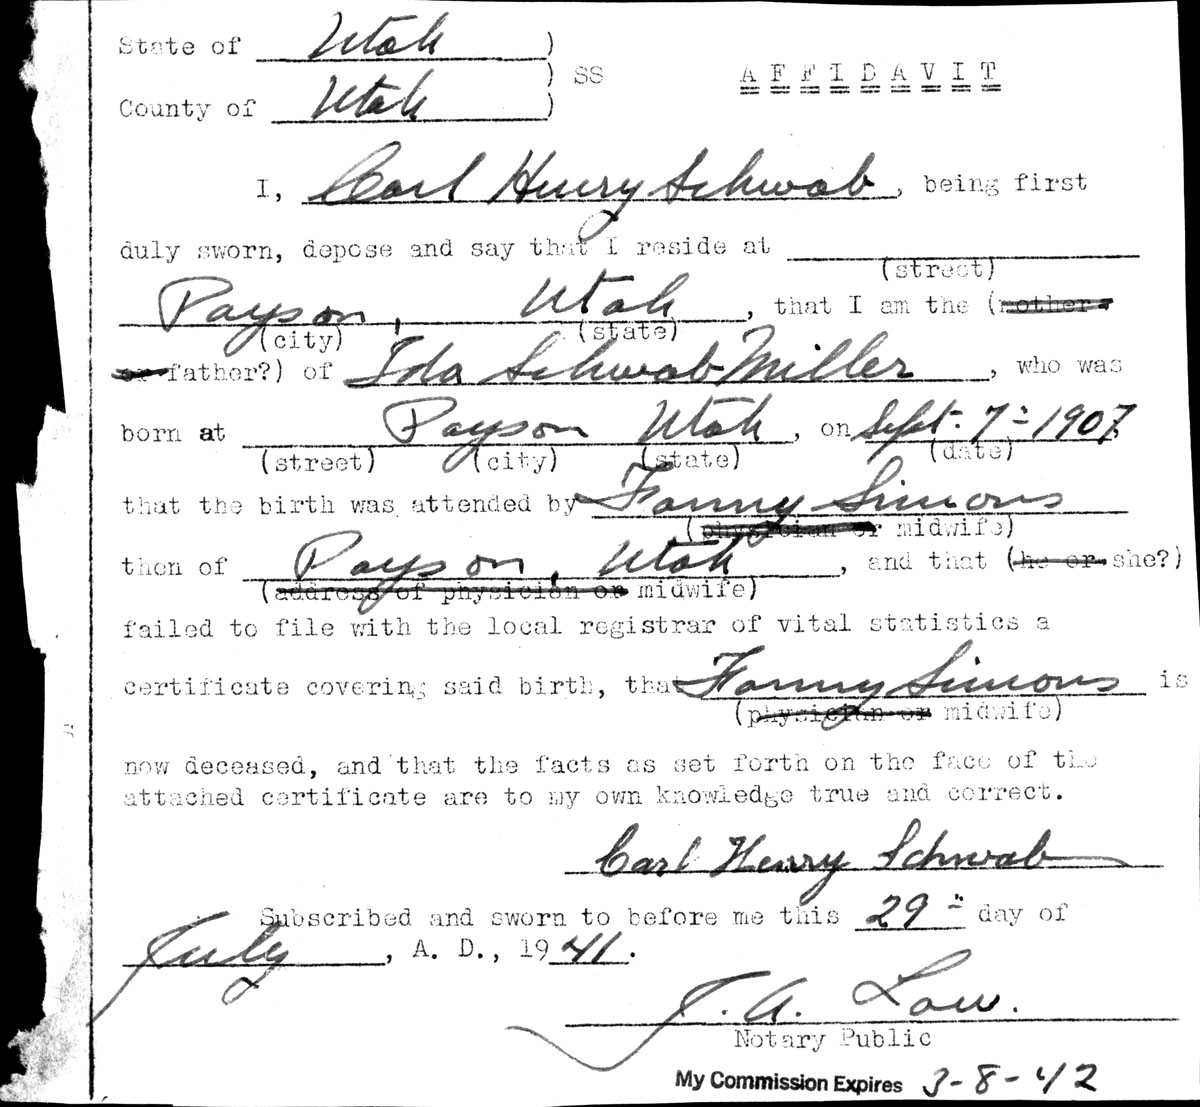 State of Utah )
) SS AFFIDAVIT
County of Utah )
I, Carl Henry Schwab, being first
duly sworn, depose and say that I reside at
(street)
Payson, Utah, that I am the (mother
(city) (state)
or father?) of Ida Schwab Miller, who was
born at Payson Utah, on Sept. 7 - 1907
(street) (city) (state) (date)
that the birth was attended by Fanny Simons
(physician or midwife)
then of Payson, Utah, and that (he or she?)
(address of physician or midwife)
failed to file with the local registrar of vital statistics a
certificate covering said birth, that Fanny Simons is
(physician or midwife)
now deceased, and that the facts as set forth on the face of the
attached certificate are to my own knowledge true and correct.
Carl Henry Schwab
Subscribed and sworn to before me this 29 day of
July, A. D., 1941.
J. A. Low.
Notary Public
My Commission Expires 3-8-42